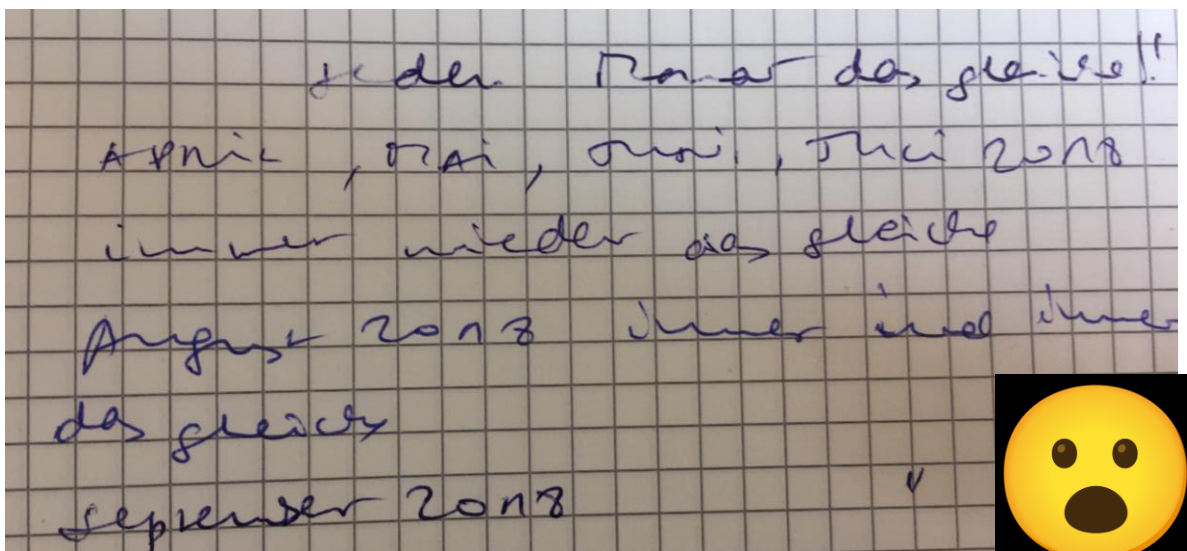 jeden Monat das gleiche!!
April, Mai, Juni, Juli 2018
immer wieder das gleiche
August 2018 immer und immer
das gleiche
September 2018 "